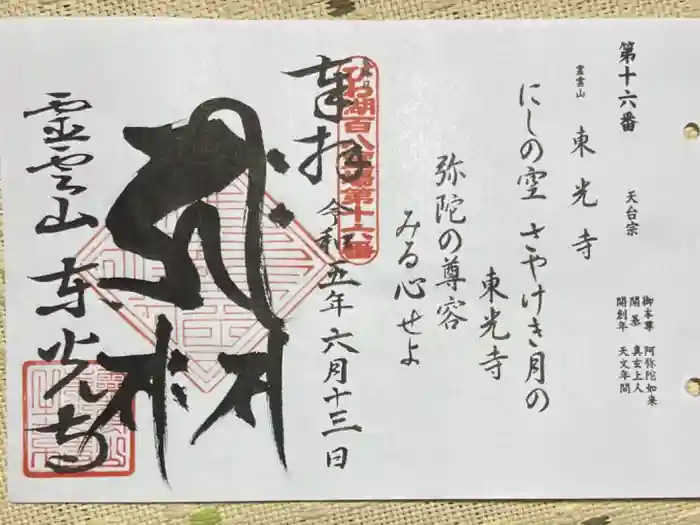 第十六番
霊雲山 東光寺
天台宗
御本尊 阿弥陀如来
開基 真玄上人
開創年 天文年間
にしの空 さやけき月の
東光寺
弥陀の尊容
みる心せよ
奉拝
びわ湖百八霊場第十六番
令和五年六月十三日
霊雲山 東光寺